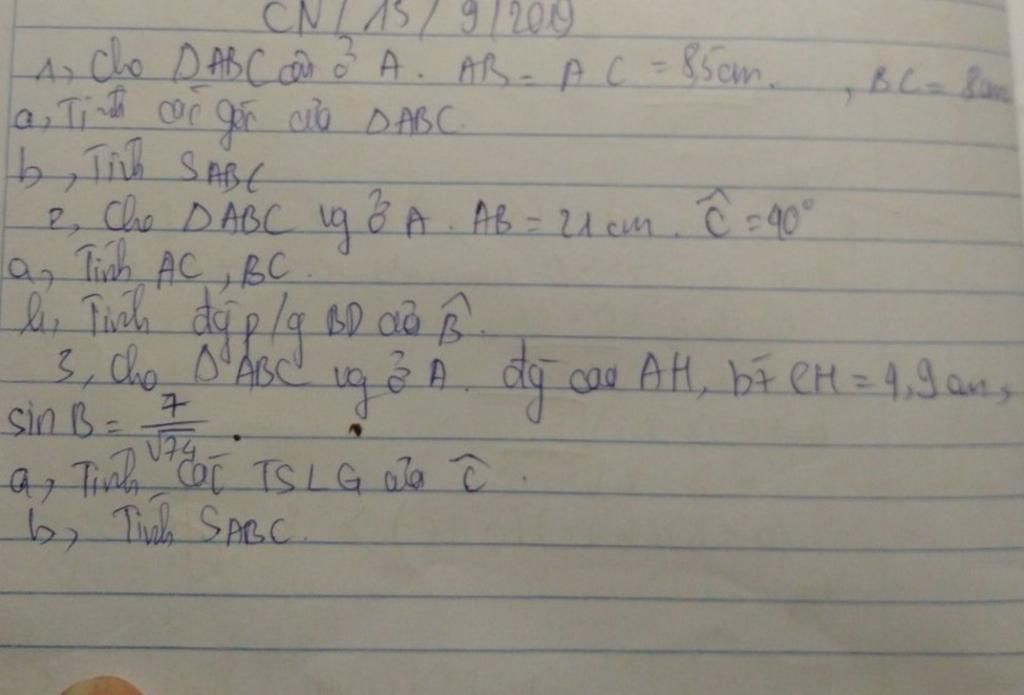 CN/15/9/2019
1, Cho ΔABC cân ở A. AB = AC = 8,5cm. , BC = 8cm
a, Tính các góc của ΔABC.
b, Tính SABC
2, Cho ΔABC vg ở A. AB = 21cm. Ĉ = 40°
a, Tính AC, BC.
b, Tính đg p/g BD của B̂.
3, Cho ΔABC vg ở A. đg cao AH, bt CH = 4,9cm,
sin B = 7/√74.
a, Tính các TSLG của Ĉ.
b, Tính SABC.